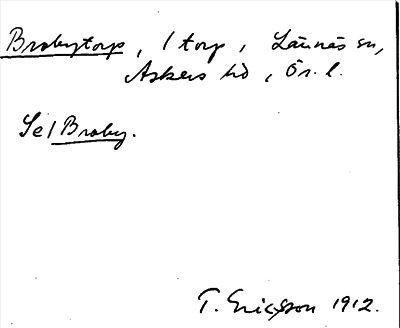 Brobytorp, 1 torp, Lännäs sn,
Askers hd, Ör. l.
Se / Broby.
T. Ericsson 1912.